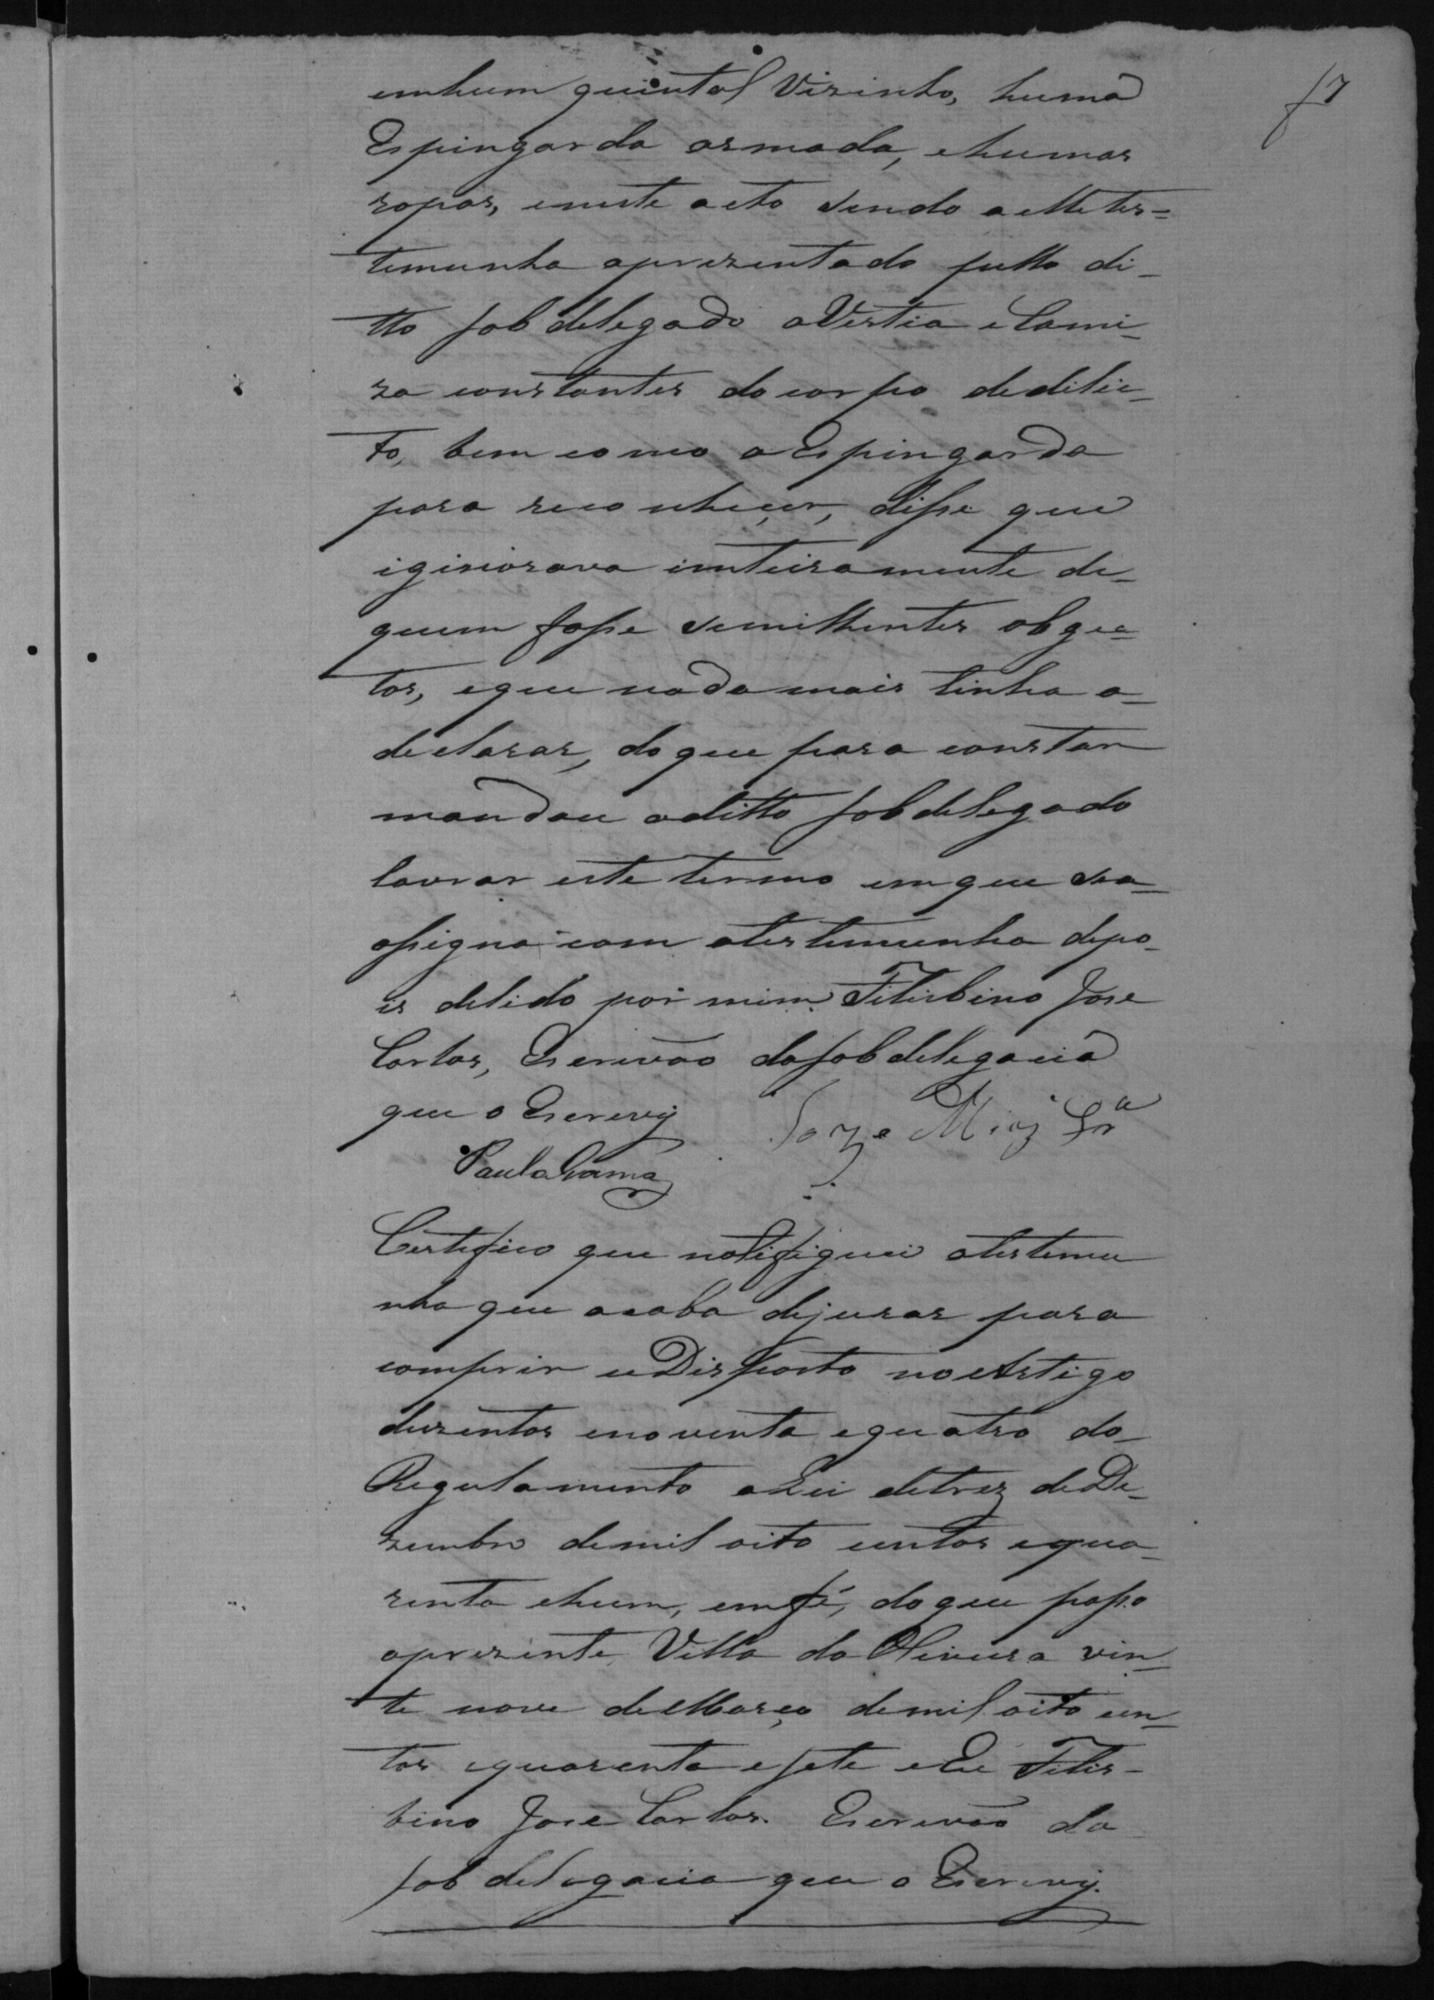 f 7
emhum quintal Vizinho, huma
Espingarda armada, ehumas
ropas, eneste acto sendo aelle tes=
temunha aprezentado pello di-
tto sobdelegado aVestia eCami-
za constantes do corpo dedelic-
to, bem como a Espingarda
para reconheçer, disse que
iginorava imteiramente de-
quem fosse semilhentes obgec-
tos, eque nada mais tinha a-
declarar, do que para constar
mandou oditto sobdelegado
lavrar este termo emque se a-
ssigna com atestemunha depo-
is delido por mim Filisbino Jose
Carlos, Escrivão da sobdelegacia
que o Escrevy
Paula Gama
Certefico que notifiquei atestemu
nha que acaba dejurar para
comprir o Disposto no Artigo
duzentos enoventa equatro do-
Regulamento a Lei detrez de De-
zembro demil oito centos equa-
renta ehum, emfé, do que passo
aprezente. Villa da Oliveira vin-
te nove de Março demil oito cen-
tos equarenta e sete eEu Filis-
bino Jose Carlos. Escrivão da
sobdelegacia que o Escrevy.